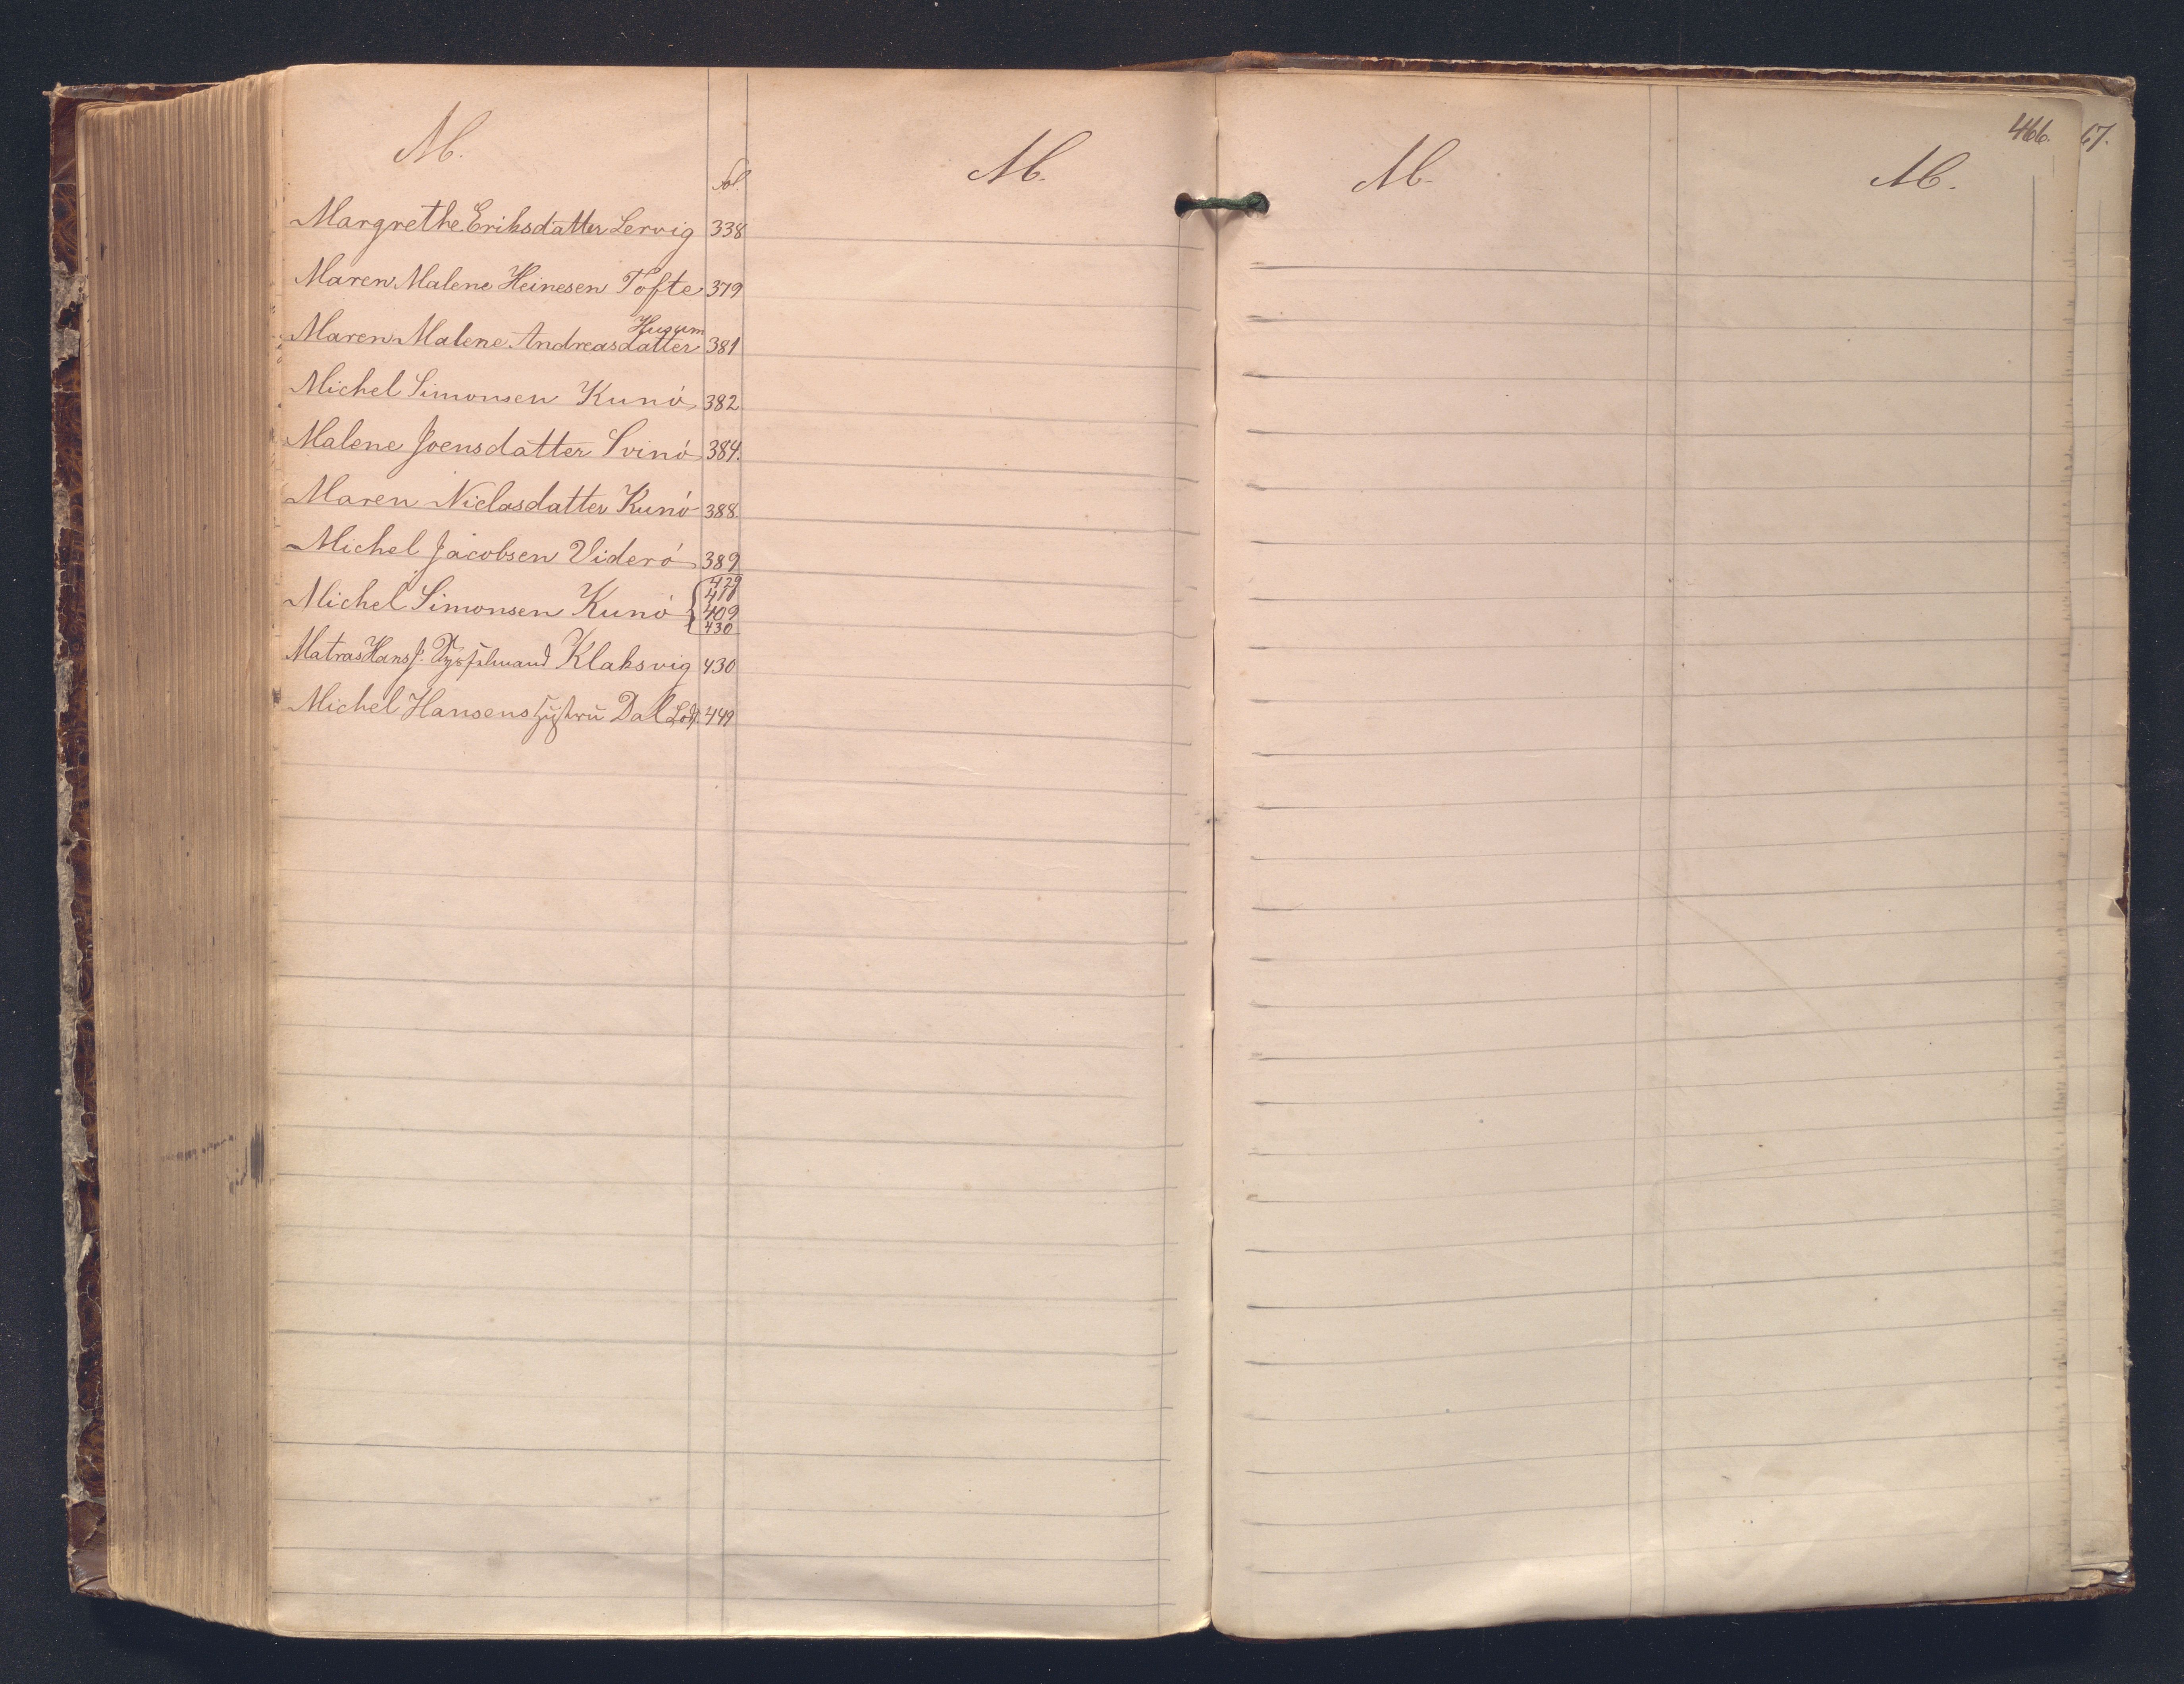 M.
Fol.
Margrethe Eriksdatter Lervig 338
Maren Malene Heinesen Tofte 379
Husum
Maren Malene Andreasdatter 381
Michel Simonsen Kunö 382
Malene Joensdatter Svinö 384.
Maren Niclasdatter Kunö 388.
Michel Jacobsen Viderö 389
429
Michel Simonsen Kunö
409
430
Matras Hans J. Klaksvig 430
Michel Hansens Hustru Dal 449
M.
M.
M.
466.
67.